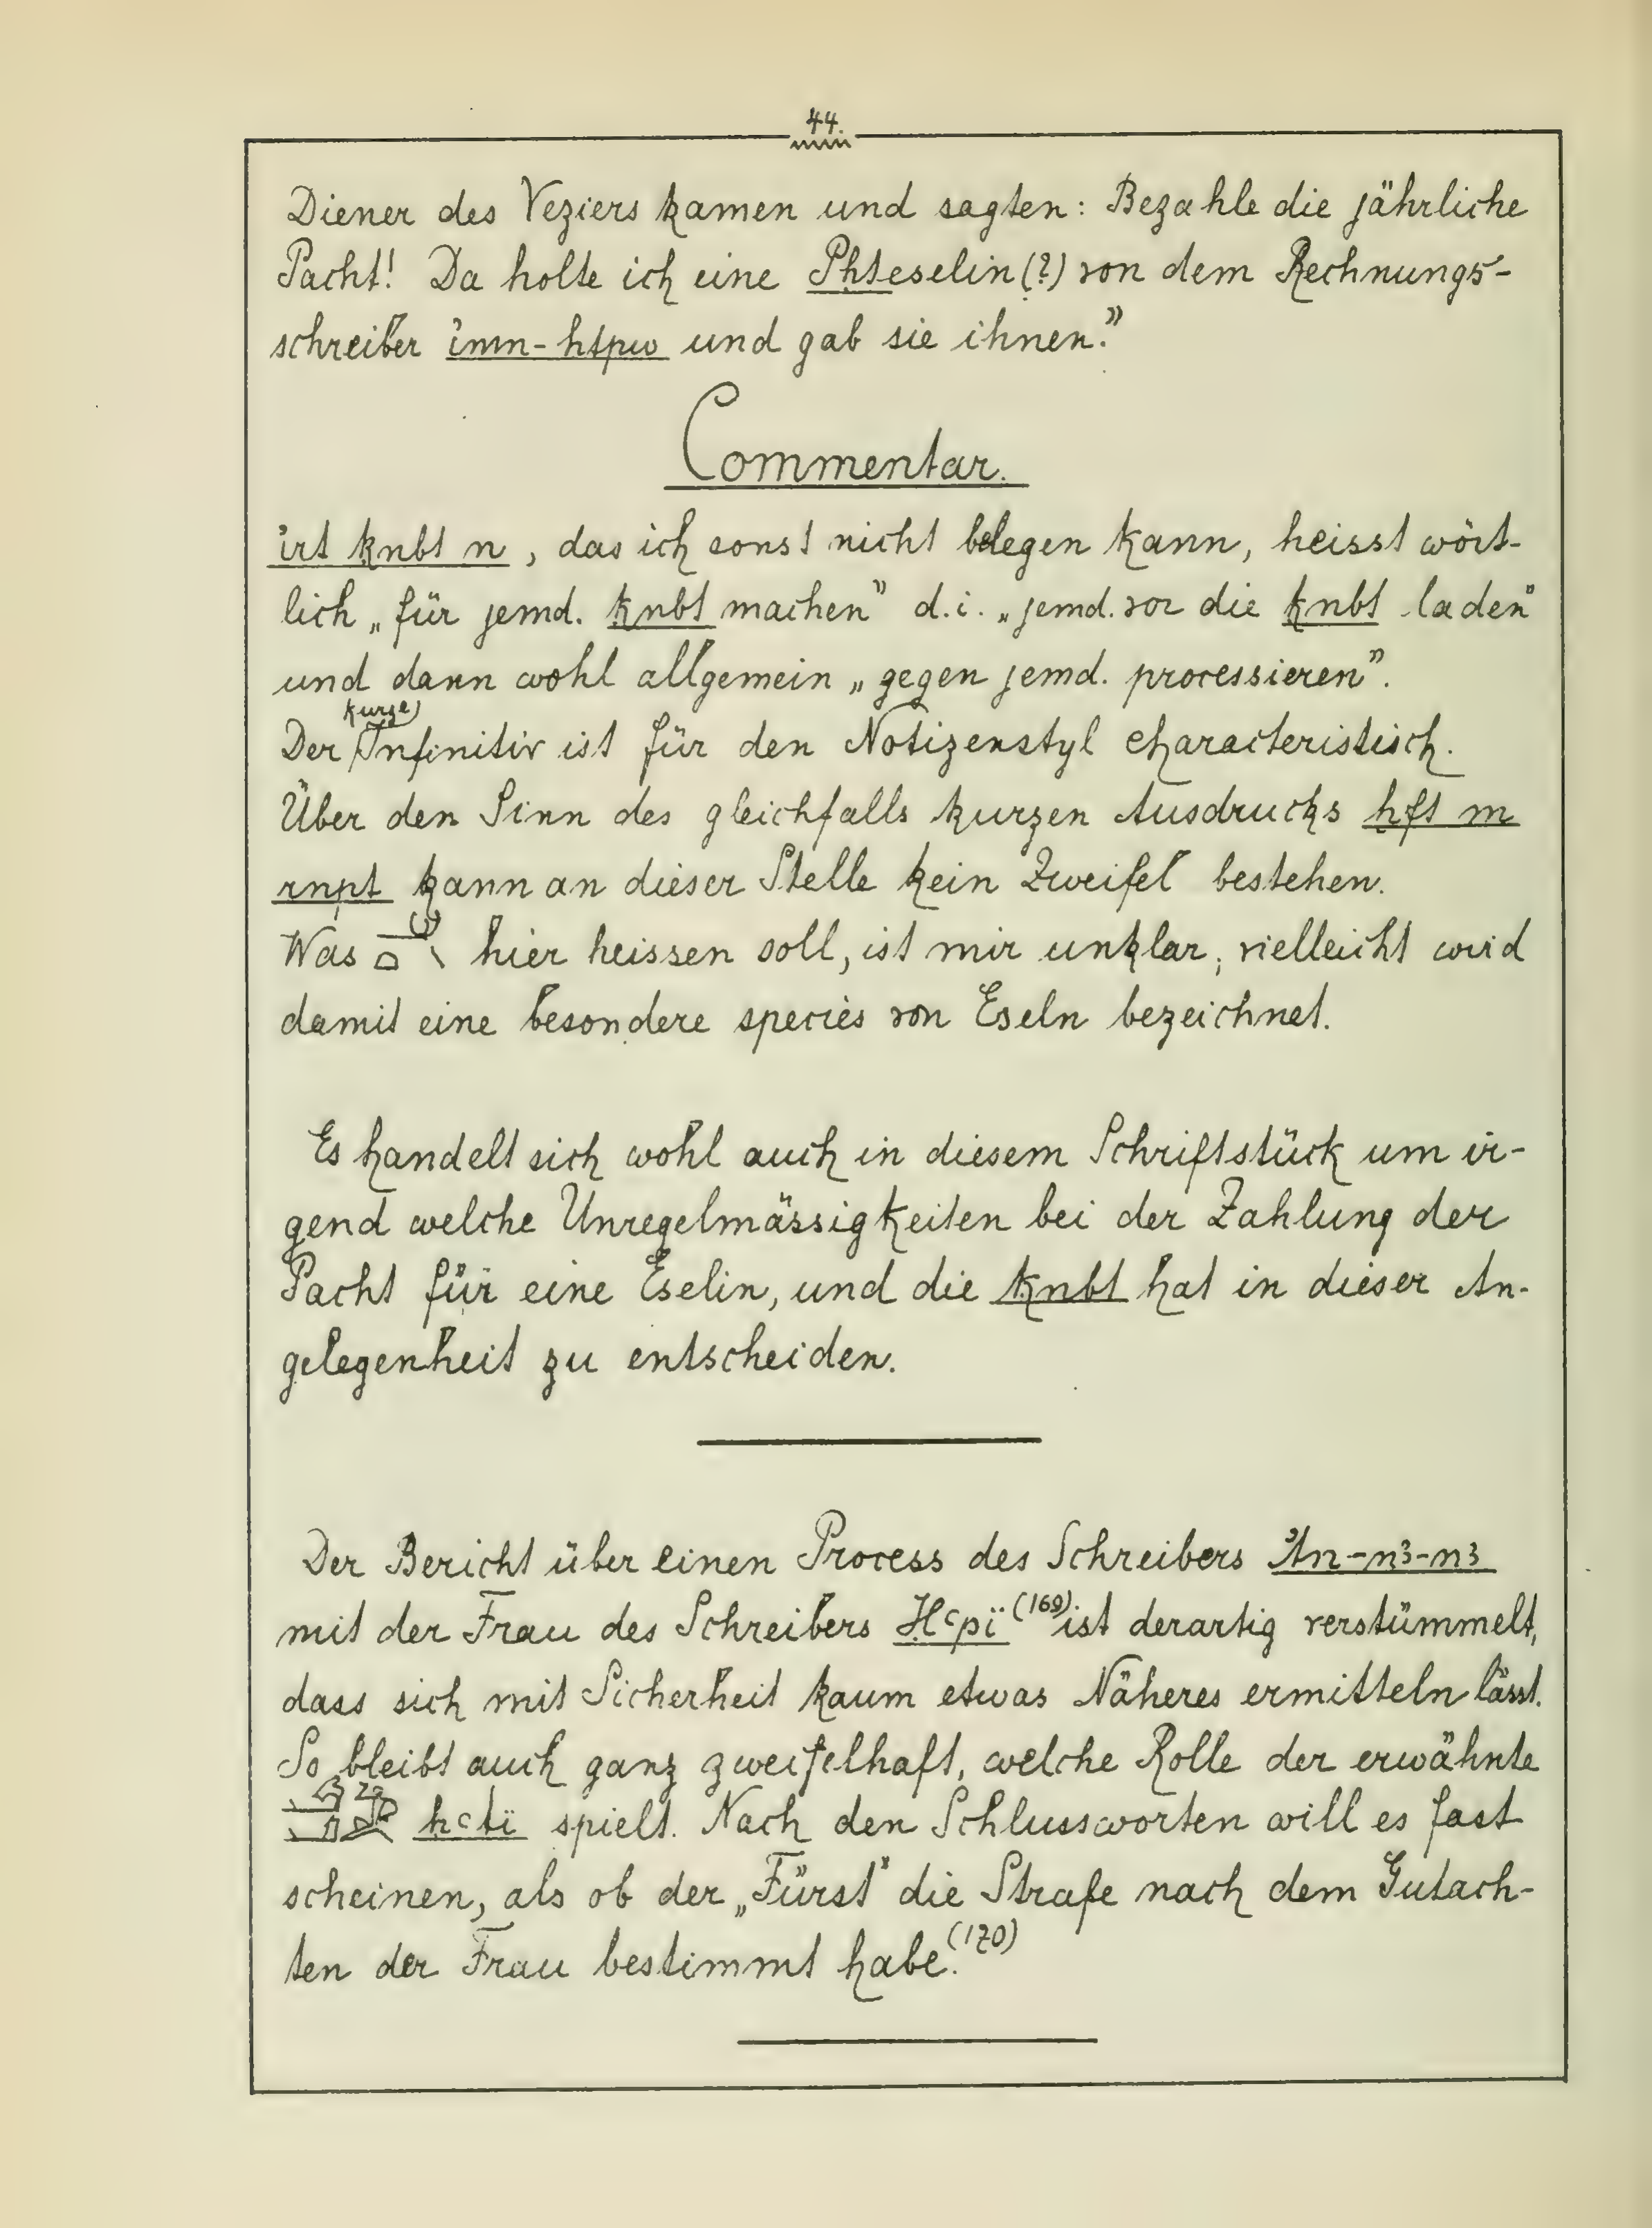 44.
Diener des Veziers kamen und sagten: Bezahle die jährliche
Pacht! Da holte ich eine Pḥteselin(?) von dem Rechnungs-
schreiber imn-ḥtpw und gab sie ihnen."
Commentar.
irt ḳnbt n, das ich sonst nicht belegen kann, heisst wört-
lich „für jemd. ḳnbt machen" d.i. „jemd. vor die ḳnbt laden"
und dann wohl allgemein „gegen jemd. processieren".
Der kurze Infinitiv ist für den Notizenstyl characteristisch.
Über den Sinn des gleichfalls kurzen Ausdrucks ḫft m
rnpt kann an dieser Stelle kein Zweifel bestehen.
Was hier heissen soll, ist mir unklar, vielleicht wird
damit eine besondere species von Eseln bezeichnet.
Es handelt sich wohl auch in diesem Schriftstück um ir-
gend welche Unregelmässigkeiten bei der Zahlung der
Pacht für eine Eselin, und die ḳnbt hat in dieser An-
gelegenheit zu entscheiden.
Der Bericht über einen Process des Schreibers Ꜣn-nꜣ-nꜣ
mit der Frau des Schreibers Ḥꜥpï (169) ist derartig verstümmelt,
dass sich mit Sicherheit kaum etwas Näheres ermitteln lässt.
So bleibt auch ganz zweifelhaft, welche Rolle der erwähnte
ḥꜥtï spielt. Nach den Schlussworten will es fast
scheinen, als ob der „Fürst" die Strafe nach dem Gutach-
ten der Frau bestimmt habe.(170)